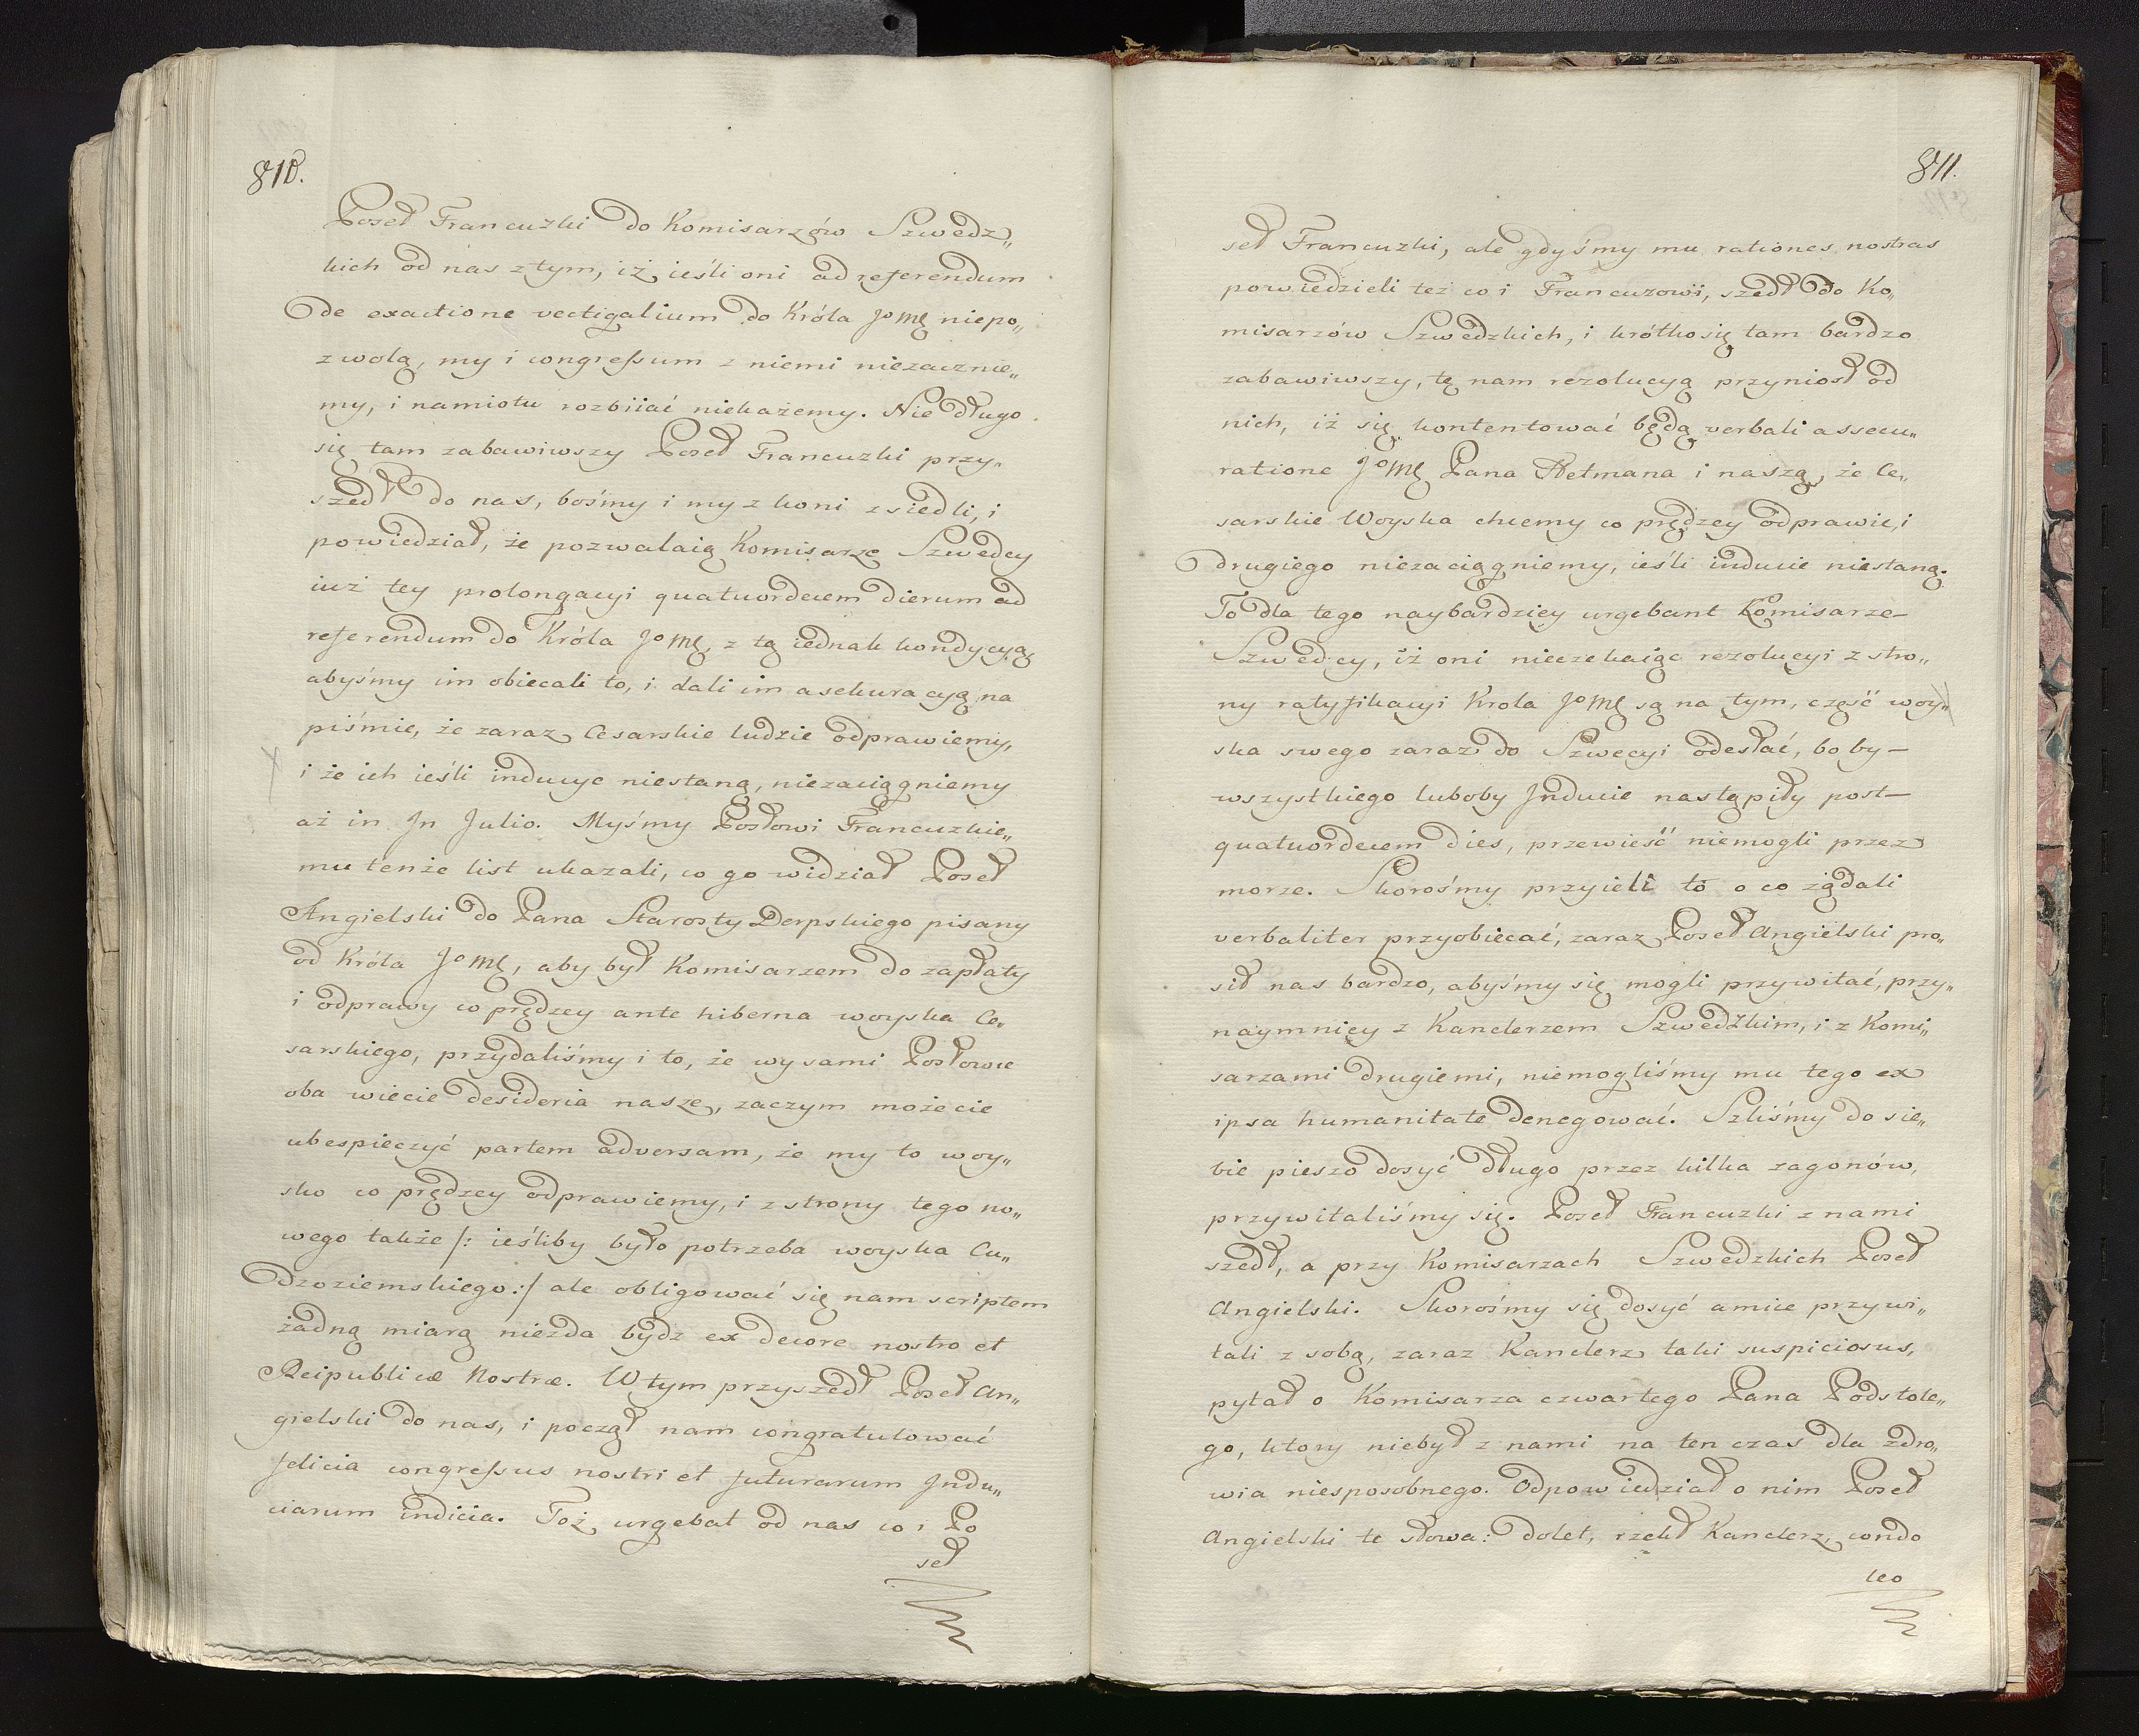 810.
Poseł Francuzki do Komisarzów Szwedz„
kich od nas z tym, iż ieśli oni ad referendum
de exactione vectigalium do Króla JoMę niepo„
zwolą, my i congressum z niemi niezacznie„
my, i namiotu rozbiiać niekażemy. Nie długo
się tam zabawiwszy Poseł Francuzki przy„
szedł do nas, bośmy i my z koni zsiedli, i
powiedział, że pozwalaią Komisarze Szwedcy
iuż tey prolongacyi quatuordecem dierum ad
referendum do Króla JoMę, z tą iednak kondycyą,
abyśmy im obiecali to, i dali im asekuracyą na
piśmie, że zaraz Cesarskie ludzie odprawiemy,
i że ich ieśli inducye niestaną, niezaciągniemy
aż in Jn Julio. Myśmy Posłowi Francuzkie„
mu tenże list ukazali, co go widział Poseł
Angielski do Pana Starosty Derpskiego pisany
od Króla JoMę, aby był Komisarzem do zapłaty
i odprawy co prędzey ante hiberna woyska Ce„
sarskiego, przydaliśmy i to, że wy sami Posłowie
oba wiecie desideria nasze, zaczym możecie
ubespieczyć partem adversam, że my to woy„
sko co prędzey odprawiemy, i z strony tego no„
wego także /: ieśliby było potrzeba woyska Cu„
dzoziemskiego :/ ale obligować się nam scriptem
żadną miarą niezda bydz ex decore nostro et
Reipublicæ Nostræ. W tym przyszedł Poseł An„
gielski do nas, i począł nam congratulować
felicia congressus nostri et futurarum Indu„
ciarum indicia. Toż urgebat od nas co i Po
seł
811.
seł Francuzki, ale gdyśmy mu rationes nostras
powiedzieli też co i Francuzowi, szedł do Ko„
misarzów Szwedzkich, i krótko się tam bardzo
zabawiwszy, tę nam rezolucyą przyniosł od
nich, iż się kontentować będą verbali assecu„
ratione JoMę Pana Hetmana i naszą, że Ce„
sarskie Woyska chcemy co prędzey odprawić, i
drugiego niezaciągniemy, ieśli inducie niestaną.
To dla tego naybardziey urgebant Komisarze
Szwedcy, iż oni nieczekaiąc rezolucyi z stro„
ny ratyfikacyi Krola JoMę są na tym, część woy„
ska swego zaraz do Szwecyi odesłać, bo by
wszystkiego luboby Inducie nastąpiły post
quatuordecem dies, przewieść niemogli przez
morze. Skorośmy przyieli to o co żądali
verbaliter przyobiecać, zaraz Poseł Angielski pro„
sił nas bardzo, abyśmy się mogli przywitać, przy„
naymniey z Kanclerzem Szwedzkim, i z Komi„
sarzami drugiemi, niemogliśmy mu tego ex
ipsa humanitate denegować. Szliśmy do sie„
bie pieszo dosyć długo przez kilka zagonów,
przywitaliśmy się. Poseł Francuzki z nami
szedł, a przy Komisarzach Szwedzkich Poseł
Angielski. Skorośmy się dosyć amice przywi„
tali z sobą, zaraz Kanclerz taki suspiciosus,
pytał o Komisarza czwartego Pana Podstole„
go, ktory niebył z nami na ten czas dla zdro„
wia niesposobnego. Odpowiedział o nim Poseł
Angielski te słowa: dolet, rzekł Kanclerz, condo
leo